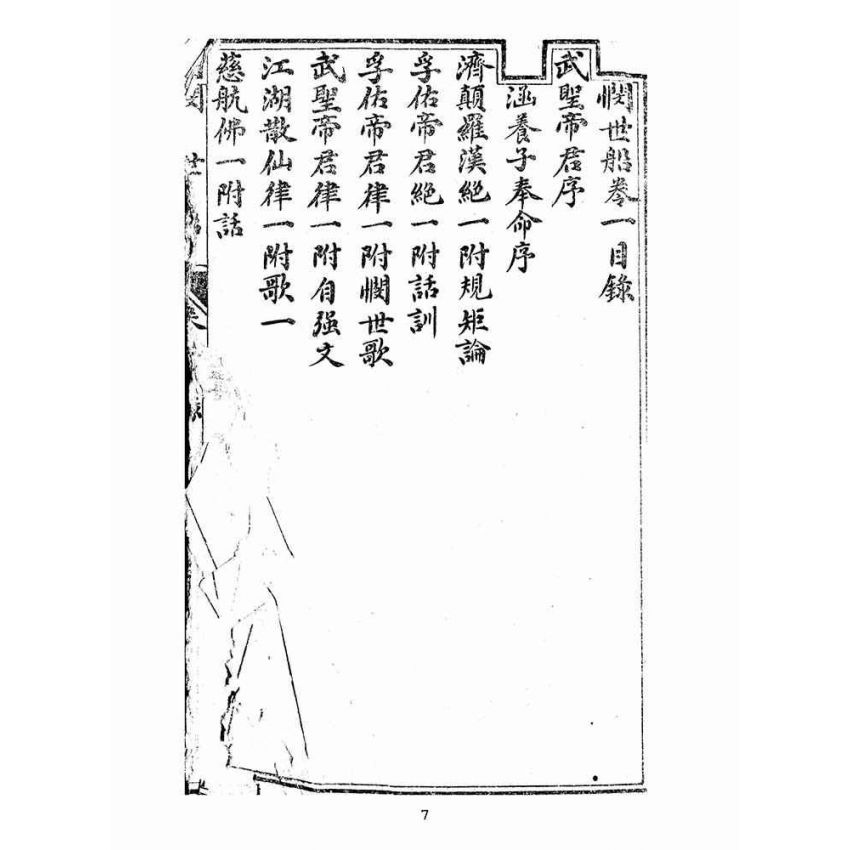 憫世船卷一目錄
武聖帝君序
涵養子奉命序
濟顛羅漢絕一附規矩論
孚佑帝君絕一附話訓
孚佑帝君律一附憫世歌
武聖帝君律一附自强文
江湖散仙律一附歌一
慈航佛一附話
7